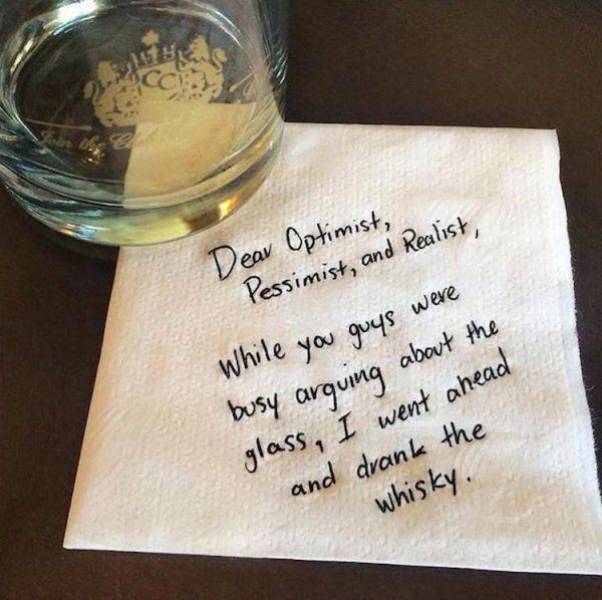 CC
Join the C
Dear Optimist,
Pessimist, and Realist,
While you guys were
busy arguing about the
glass, I went ahead
and drank the
whisky.